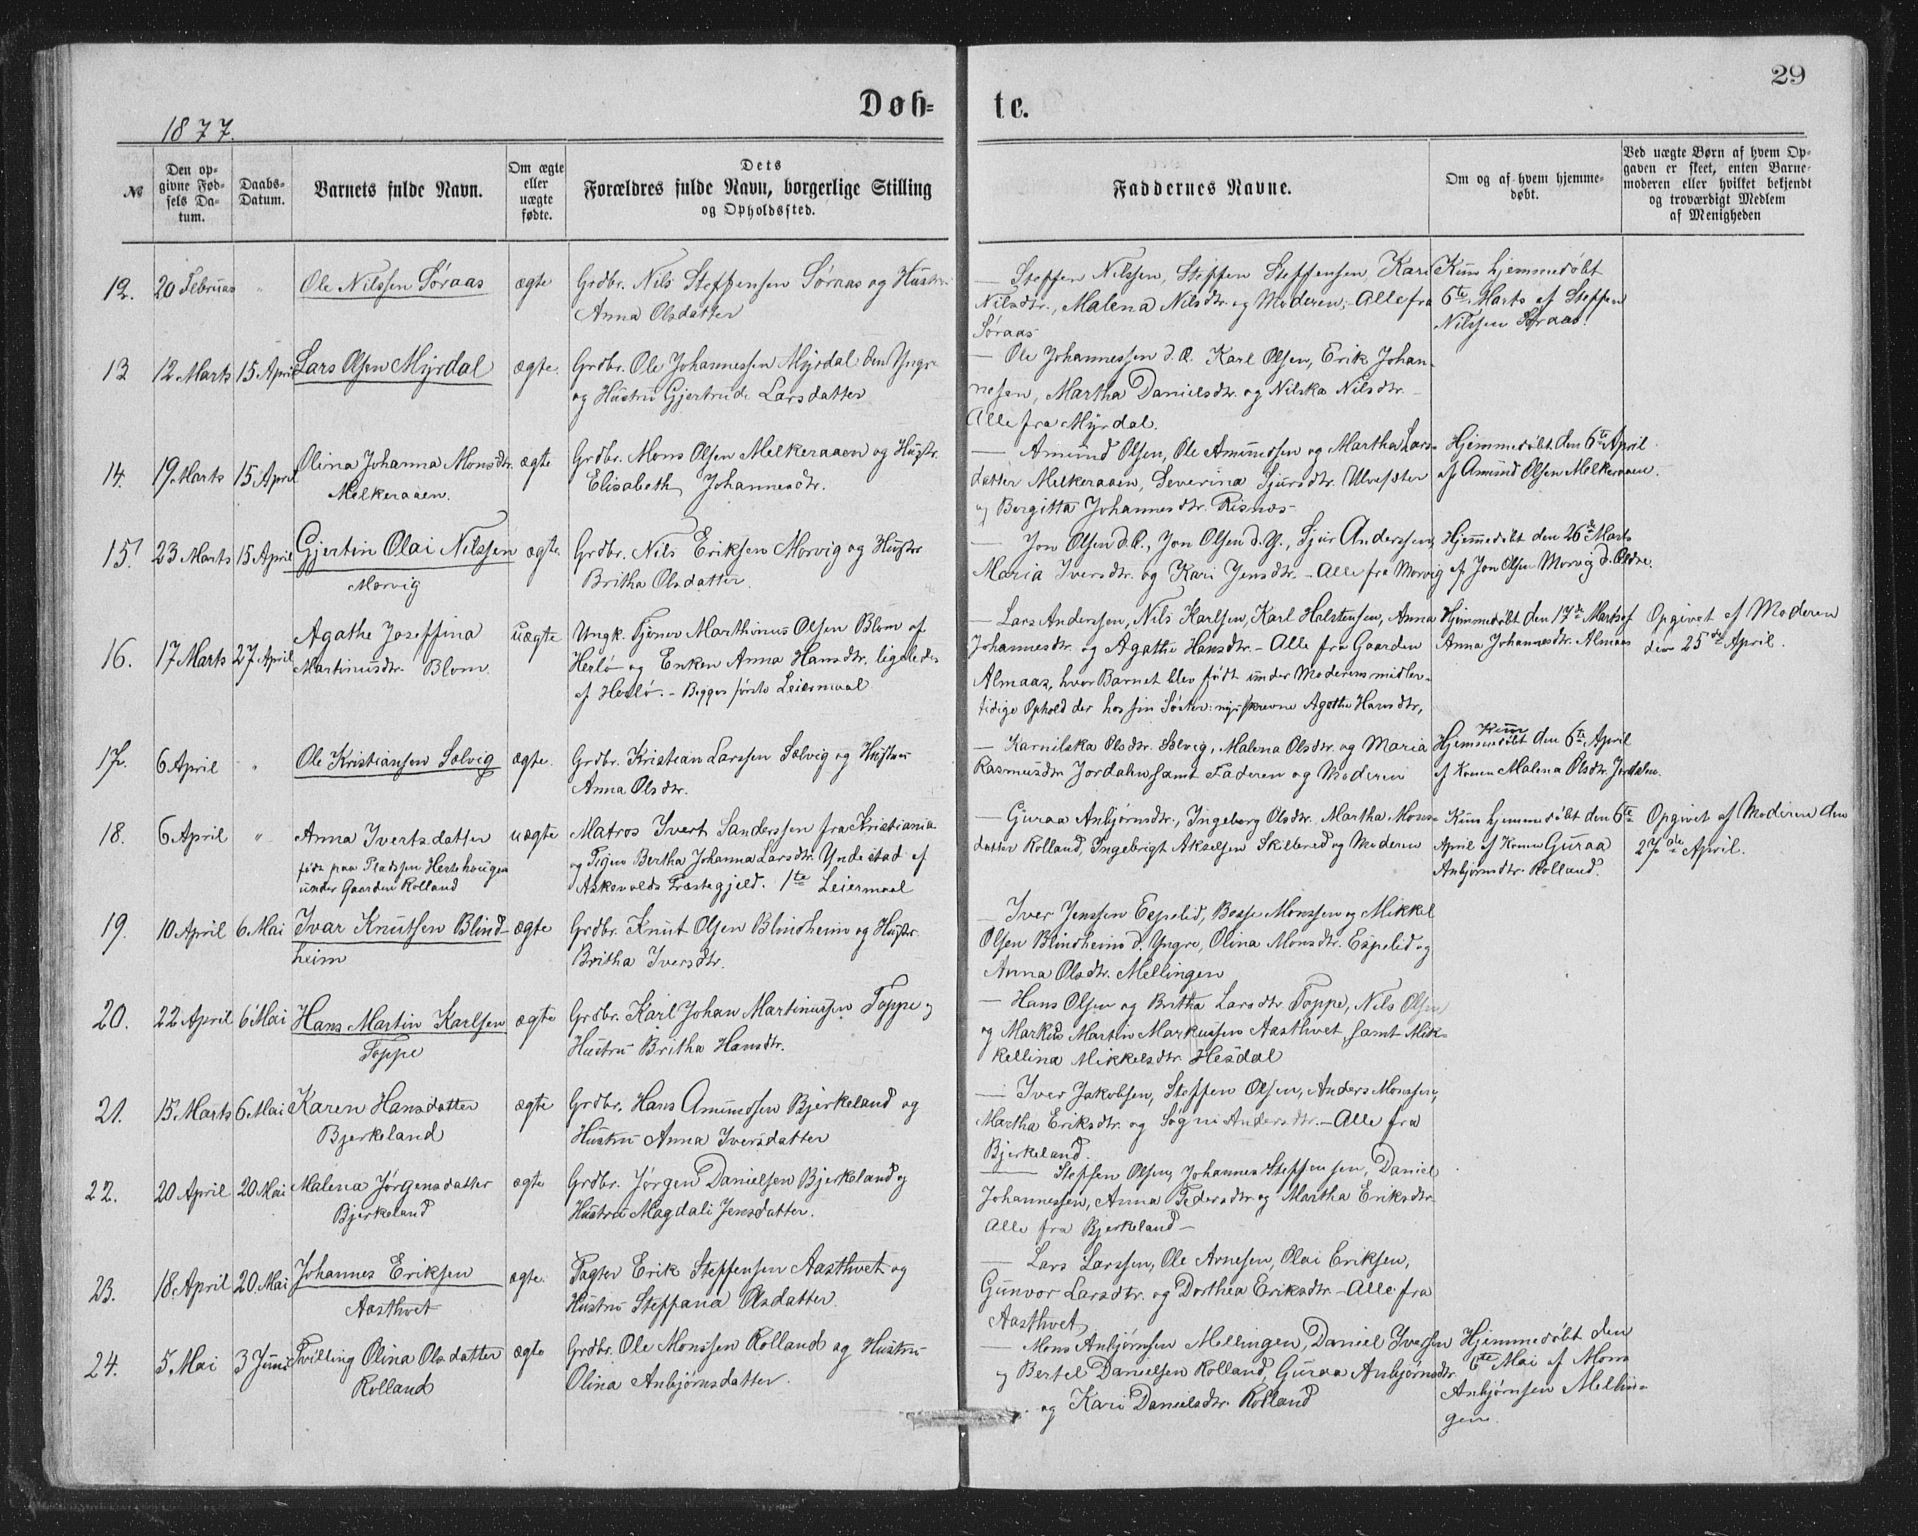 29
Døb-
te.
1877.
№
Den opgivne Fødsels Datum.
Daabs-Datum.
Barnets fulde Navn.
Om ægte eller uægte fødte.
Dets
Forældres fulde Navn, borgerlige Stilling
og Opholdssted.
Faddernes Navne.
Om og af hvem hjemmedøbt.
Ved uægte Børn af hvem Opgaven er skeet, enten Barnemoderen eller hvilket bekjendt og troværdigt Medlem af Menigheden
12. 20 Februar " Ole Nilssen Søraas ægte Grdbr. Nils Steffensen Søraas og Hustru
Anna Olsdatter
— Steffen Nilssen, Steffen Steffensen Kari
Nilsdtr., Malena Nilsdtr. og Moderen; Alle fra
Søraas
Kun hjemmedøbt
6te Marts af Steffen
Nilssen Søraas.
13 12 Marts 15 April Lars Olsen Myrdal ægte. Grdbr. Ole Johannessen Myrdal den Yngre
og Hustru Gjertrude Larsdatter
— Ole Johannessen d.Æ. Karl Olsen, Erik Johan-
nesen, Martha Danielsdtr. og Nilska Nilsdtr. —
Alle fra Myrdal.
14. 19 Marts 15 April Olina Johanna Monsdtr. ægte Grdbr. Mons Olsen Melkeraaen og Hustr.
Melkeraaen. Elisabeth Johannesdtr.
— Amund Olsen, Ole Amundsen og Martha Lars-
datter Melkeraaen, Severina Sjursdtr. Ulvesæter
og Bergitta Johannesdtr. Risnæs
Hjemmedøbt den 6te April
af Amund Olsen Melkeraaen.
15. 23 Marts 15 April Gjertin Olai Nilssen ægte. Grdbr. Nils Eriksen Morvig og Hustr
Morvig Britha Olsdatter.
— Jon Olsen d.Æ., Jon Olsen d.Y., Sjur Anderssen,
Maria Iversdtr. og Kari Jensdtr. - Alle fra Morvig
Hjemmedøbt den 26de Marts
af Jon Olsen Morvig d. Ældre.
16. 17 Marts 27 April Agathe Joseffina uægte Ungk. Tjener Marthinus Olsen Blom af
Martinusdtr. Blom. Herlø og Enken Anna Hansdtr. ligeledes
af Herlø. - Begges første Leiermaal
— Lars Anderssen, Nils Karlsen, Karl Halstensen, Anna
Johannesdtr. og Agathe Hansdtr. - Alle fra Gaarden
Almaas, hvor Barnet blev født under Moderens midler-
tidige Ophold der hos sin Søster: nysskrevne Agathe Hansdtr,
Hjemmedøbt den 17de Marts af
Anna Johannesdtr. Almaas
Opgivet af Moderen
den 25de April.
17. 6 April " Ole Kristiansen Solvig ægte. Grdbr. Kristian Larssen Solvig og Hustru
Anna Olsdtr.
— Karnilska Olsdtr. Solvig, Malena Olsdtr. og Maria
Rasmusdtr. Jordahn samt Faderen og Moderen
Kun
Hjemmedøbt den 6te April
af Konen Malena Olsdtr. Jordalen.
18. 6 April " Anna Ivertsdatter uægte Matros Ivert Sanderssen fra Kristiania
født paa Pladsen Hestehougen og Pigen Bertha Johanna Larsdtr. Yndestad af
under Gaarden Rolland Askevolds Præstegjeld. 1te Leiermaal
— Guraa Anbjørnsdtr., Ingeborg Olsdtr. Martha Mons-
datter Rolland, Ingebrigt Akselsen Skillered og Moderen
Kun hjemmedøbt den 6te
April af Konen Guraa
Anbjørnsdtr. Rolland.
Opgivet af Moderen den
27de April.
19. 10 April 6 Mai Ivar Knutsen Blind- ægte Grdbr. Knut Olsen Blindheim og Hustr.
heim Britha Iversdtr.
— Iver Jenssen Espelid, Bosse Monssen og Mikkel
Olsen Blindheim d. Yngre, Olina Monsdtr. Espelid og
Anna Olsdtr. Mellingen
20. 22 April 6 Mai Hans Martin Karlsen ægte Grdbr. Karl Johan Martinussen Toppe og
Toppe Hustru Britha Hansdtr.
— Hans Olsen og Britha Larsdtr. Toppe, Nils Olsen
og Markus Martin Markussen Aasthvet, samt Mik-
kellina Mikkelsdtr. Hesdal
21. 15 Marts 6 Mai Karen Hansdatter ægte Grdbr. Hans Amundsen Bjerkeland og
Bjerkeland Hustru Anna Iversdatter
— Iver Jakobsen, Steffen Olsen, Anders Monssen,
Martha Eriksdtr. og Søgni Andersdtr. - Alle fra
Bjerkeland.
22. 20 April 20 Mai Malena Jørgensdatter ægte Grdbr. Jørgen Danielsen Bjerkeland og
Bjerkeland Hustru Magdali Jensdatter.
— Steffen Olsen, Johannes Steffensen, Daniel
Johannessen, Anna Pedersdtr og Martha Eriksdtr.
Alle fra Bjerkeland —
23. 18 April 20 Mai Johannes Eriksen ægte. Pagter Erik Steffensen Aasthvet og
Aasthvet Hustru Steffana Olsdatter.
— Lars Larssen, Ole Arnesen, Olai Eriksen,
Gunvor Larsdtr. og Dorthea Eriksdtr. - Alle fra
Aasthvet
24. 5 Mai 3 Juni Tvilling Olina Olsdatter ægte Grdbr. Ole Monssen Rolland og Hustru
Rolland Olina Anbjørnsdatter.
— Mons Anbjørnsen Mellingen, Daniel Iverssen
og Bertel Danielsen Rolland, Guraa Anbjørnsdtr.
og Kari Danielsdtr. Rolland
Hjemmedøbt den
6te Mai af Mons
Anbjørnsen Mellin-
gen.